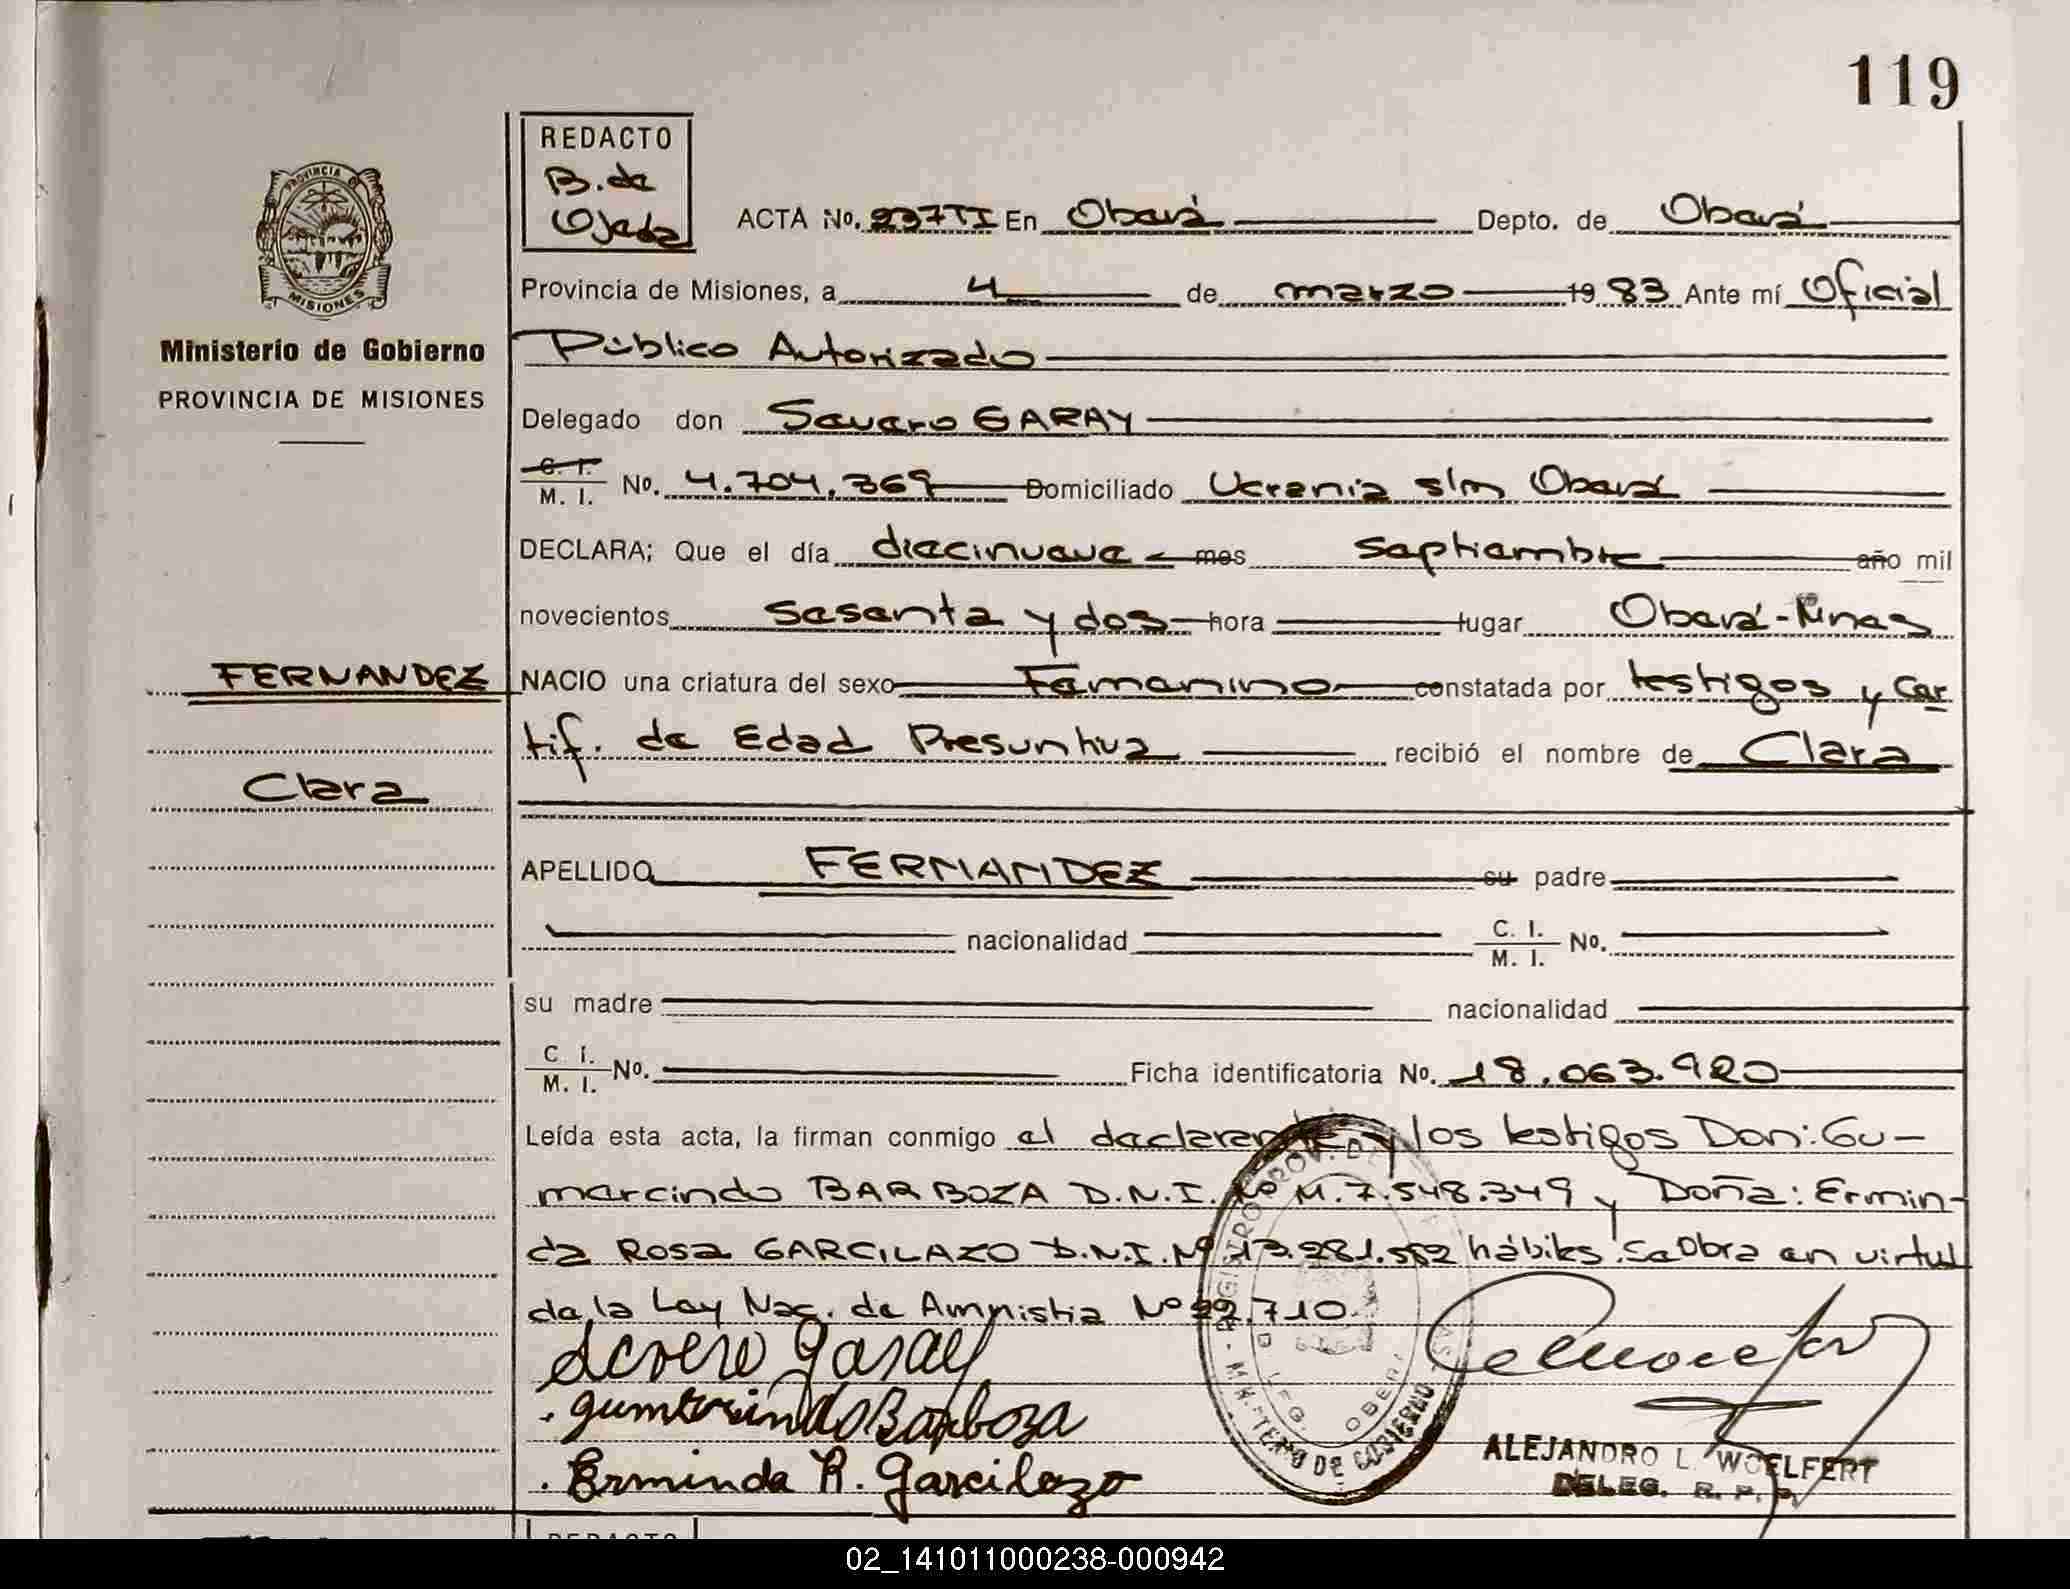 119
REDACTO
B. de
Ojeda
ACTA No. 237TI En Oberá Depto. de Oberá
PROVINCIA DE
MISIONES
Provincia de Misiones, a 4 de marzo 19 83 Ante mí Oficial
Ministerio de Gobierno
Público Autorizado
PROVINCIA DE MISIONES
Delegado don Severo GARAY
C. I.
M. I. No. 4.704.369 Domiciliado Ucrania s/n Oberá
DECLARA; Que el día diecinueve mes septiembre año mil
novecientos sesenta y dos hora lugar Oberá-Mnes
FERNANDEZ
NACIO una criatura del sexo Femenino constatada por testigos y Cer
tif. de Edad Presuntiva recibió el nombre de Clara
Clara
APELLIDO FERNANDEZ su padre
nacionalidad C. I.
M. I. No.
su madre nacionalidad
C. I.
M. I. No. Ficha identificatoria No. 18.063.920
Leída esta acta, la firman conmigo el declarante y los testigos Don: Gu-
marcindo BARBOZA D.N.I. No M.7.548.349 y Doña: Ermin-
da Rosa GARCILAZO D.N.I. Nº hábiles. Se Obra en virtud
de la Ley Nac. de Amnistia Nº 22.710.
Severo Garay
Gumersindo Barboza
Erminda R. Garcilazo
DELEG. OBERA
MINISTERIO DE GOBIERNO
ALEJANDRO L. WOELFERT
DELEG. R. P. P.
REDACTO
02_141011000238-000942